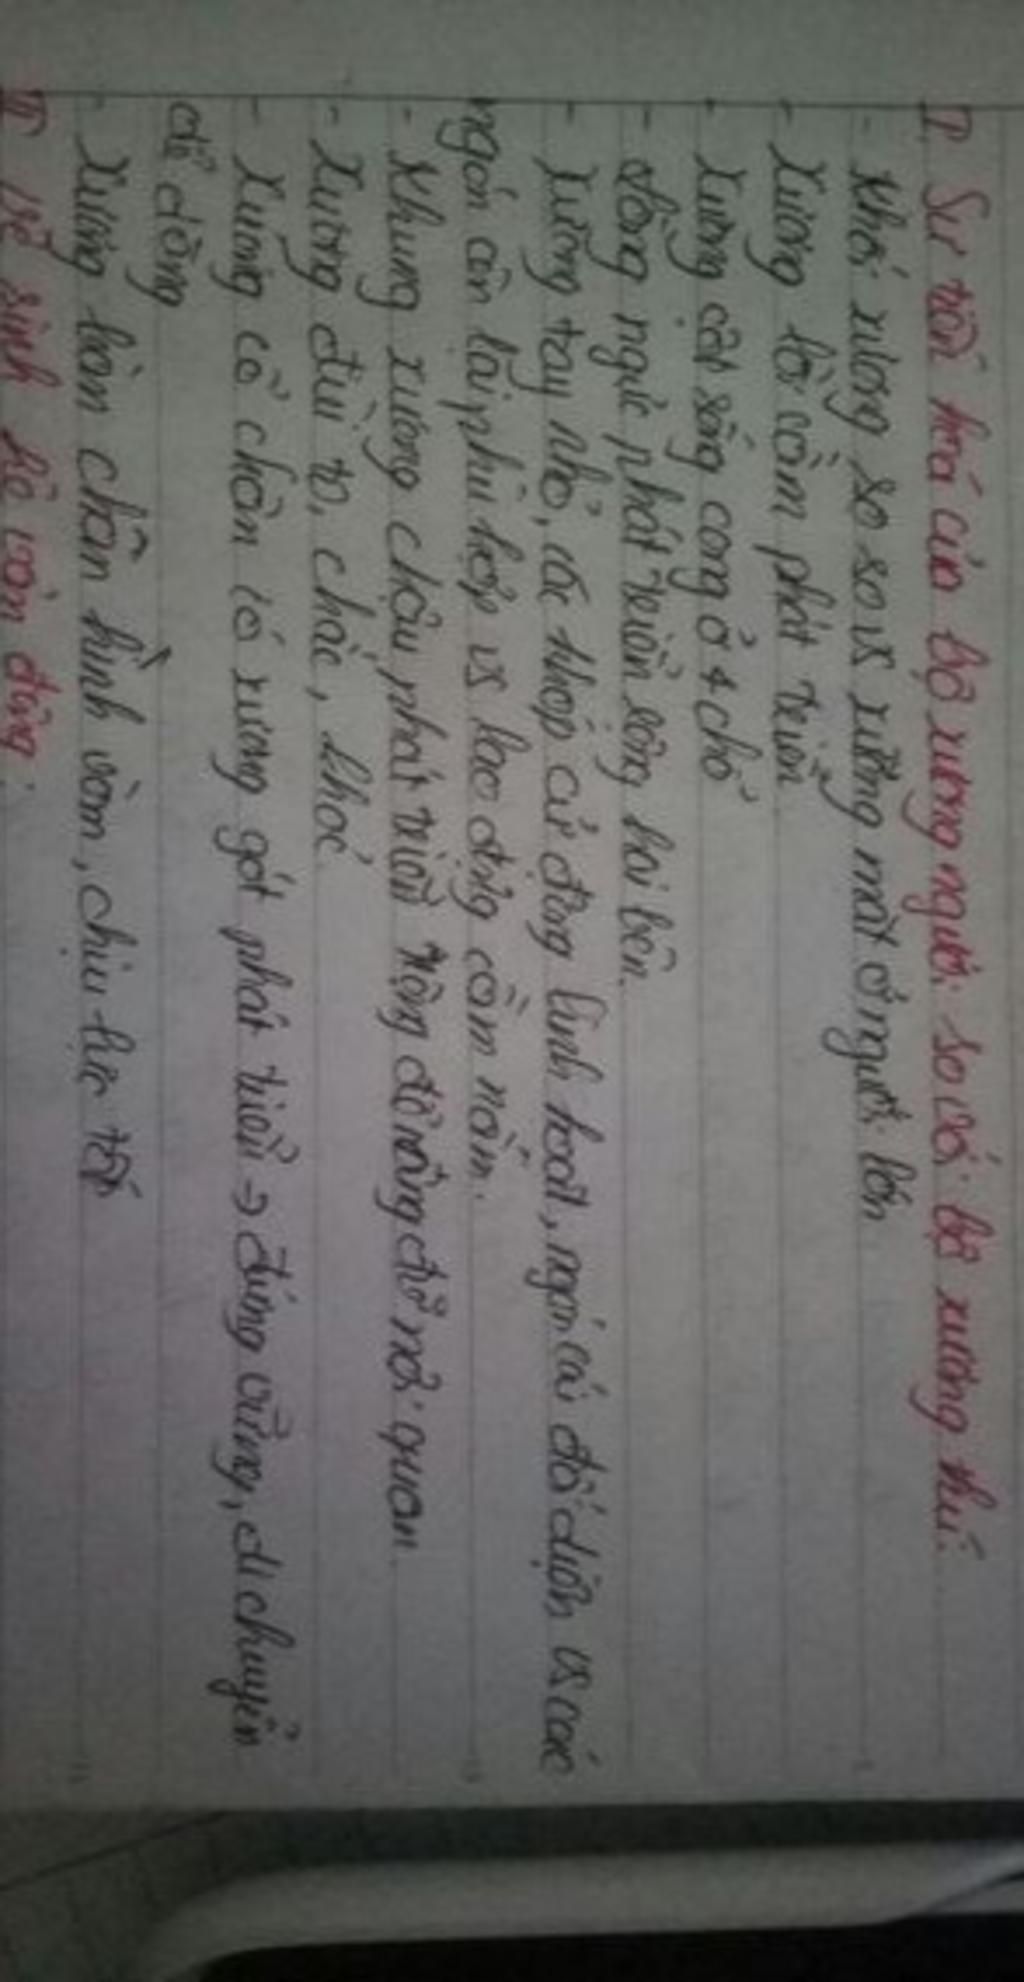 I. Sự tiến hoá của bộ xương người so với bộ xương thú:
- Khối xương sọ so vs xương mặt ở người lớn
- Xương lồi cằm phát triển
- Xương cột sống cong ở 4 chỗ
- Lồng ngực phát triển sang hai bên.
- Xương tay nhỏ, các khớp cử động linh hoạt, ngón cái đối diện vs các
ngón còn lại phù hợp vs lao động cầm nắm.
- Khung xương chậu phát triển rộng để nâng đỡ nội quan
- Xương đùi to, chắc, khoẻ
- Xương cổ chân có xương gót phát triển → đứng vững, di chuyển
dễ dàng
- Xương bàn chân hình vòm, chịu lực tốt
II Vệ sinh hệ vận động.